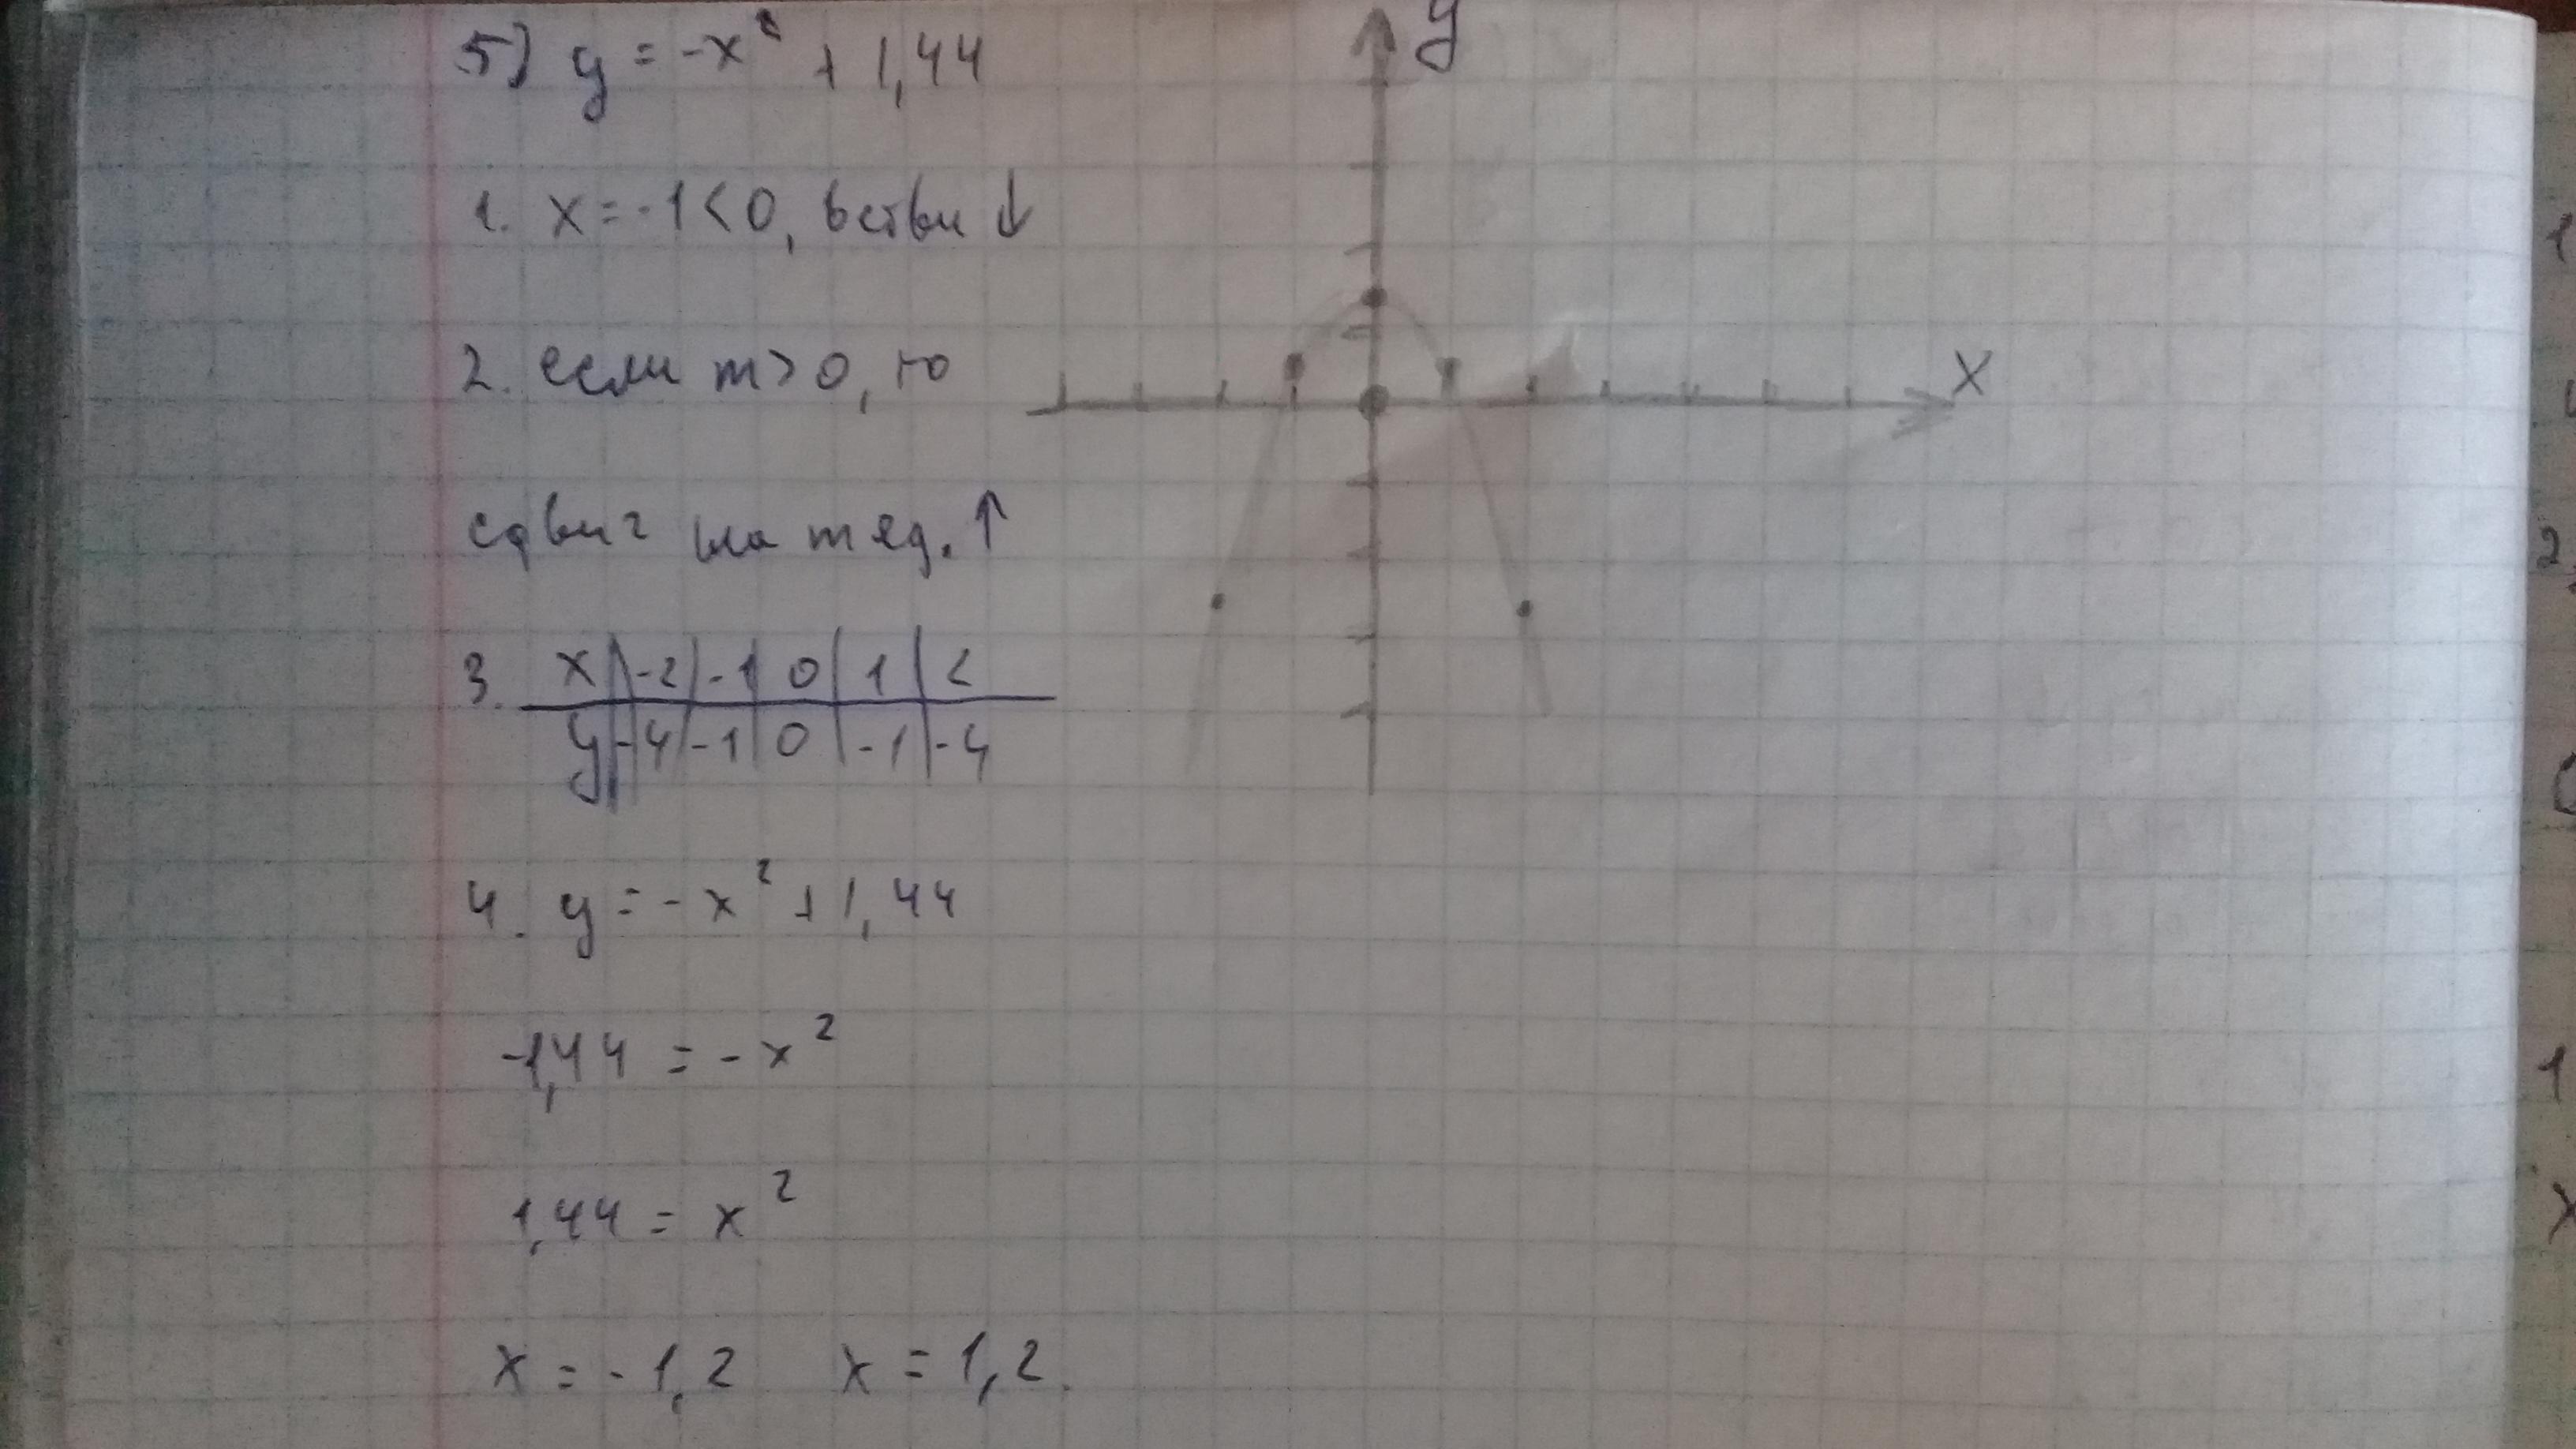 5) y = -x² + 1,44
1. x = -1 < 0, ветви ↓
2. если m > 0, то
сдвиг на m ед. ↑
3. x | -2 | -1 | 0 | 1 | 2
y | -4 | -1 | 0 | -1 | -4
4. y = -x² + 1,44
-1,44 = -x²
1,44 = x²
x = -1,2 x = 1,2.
y
x
1
2
1
x